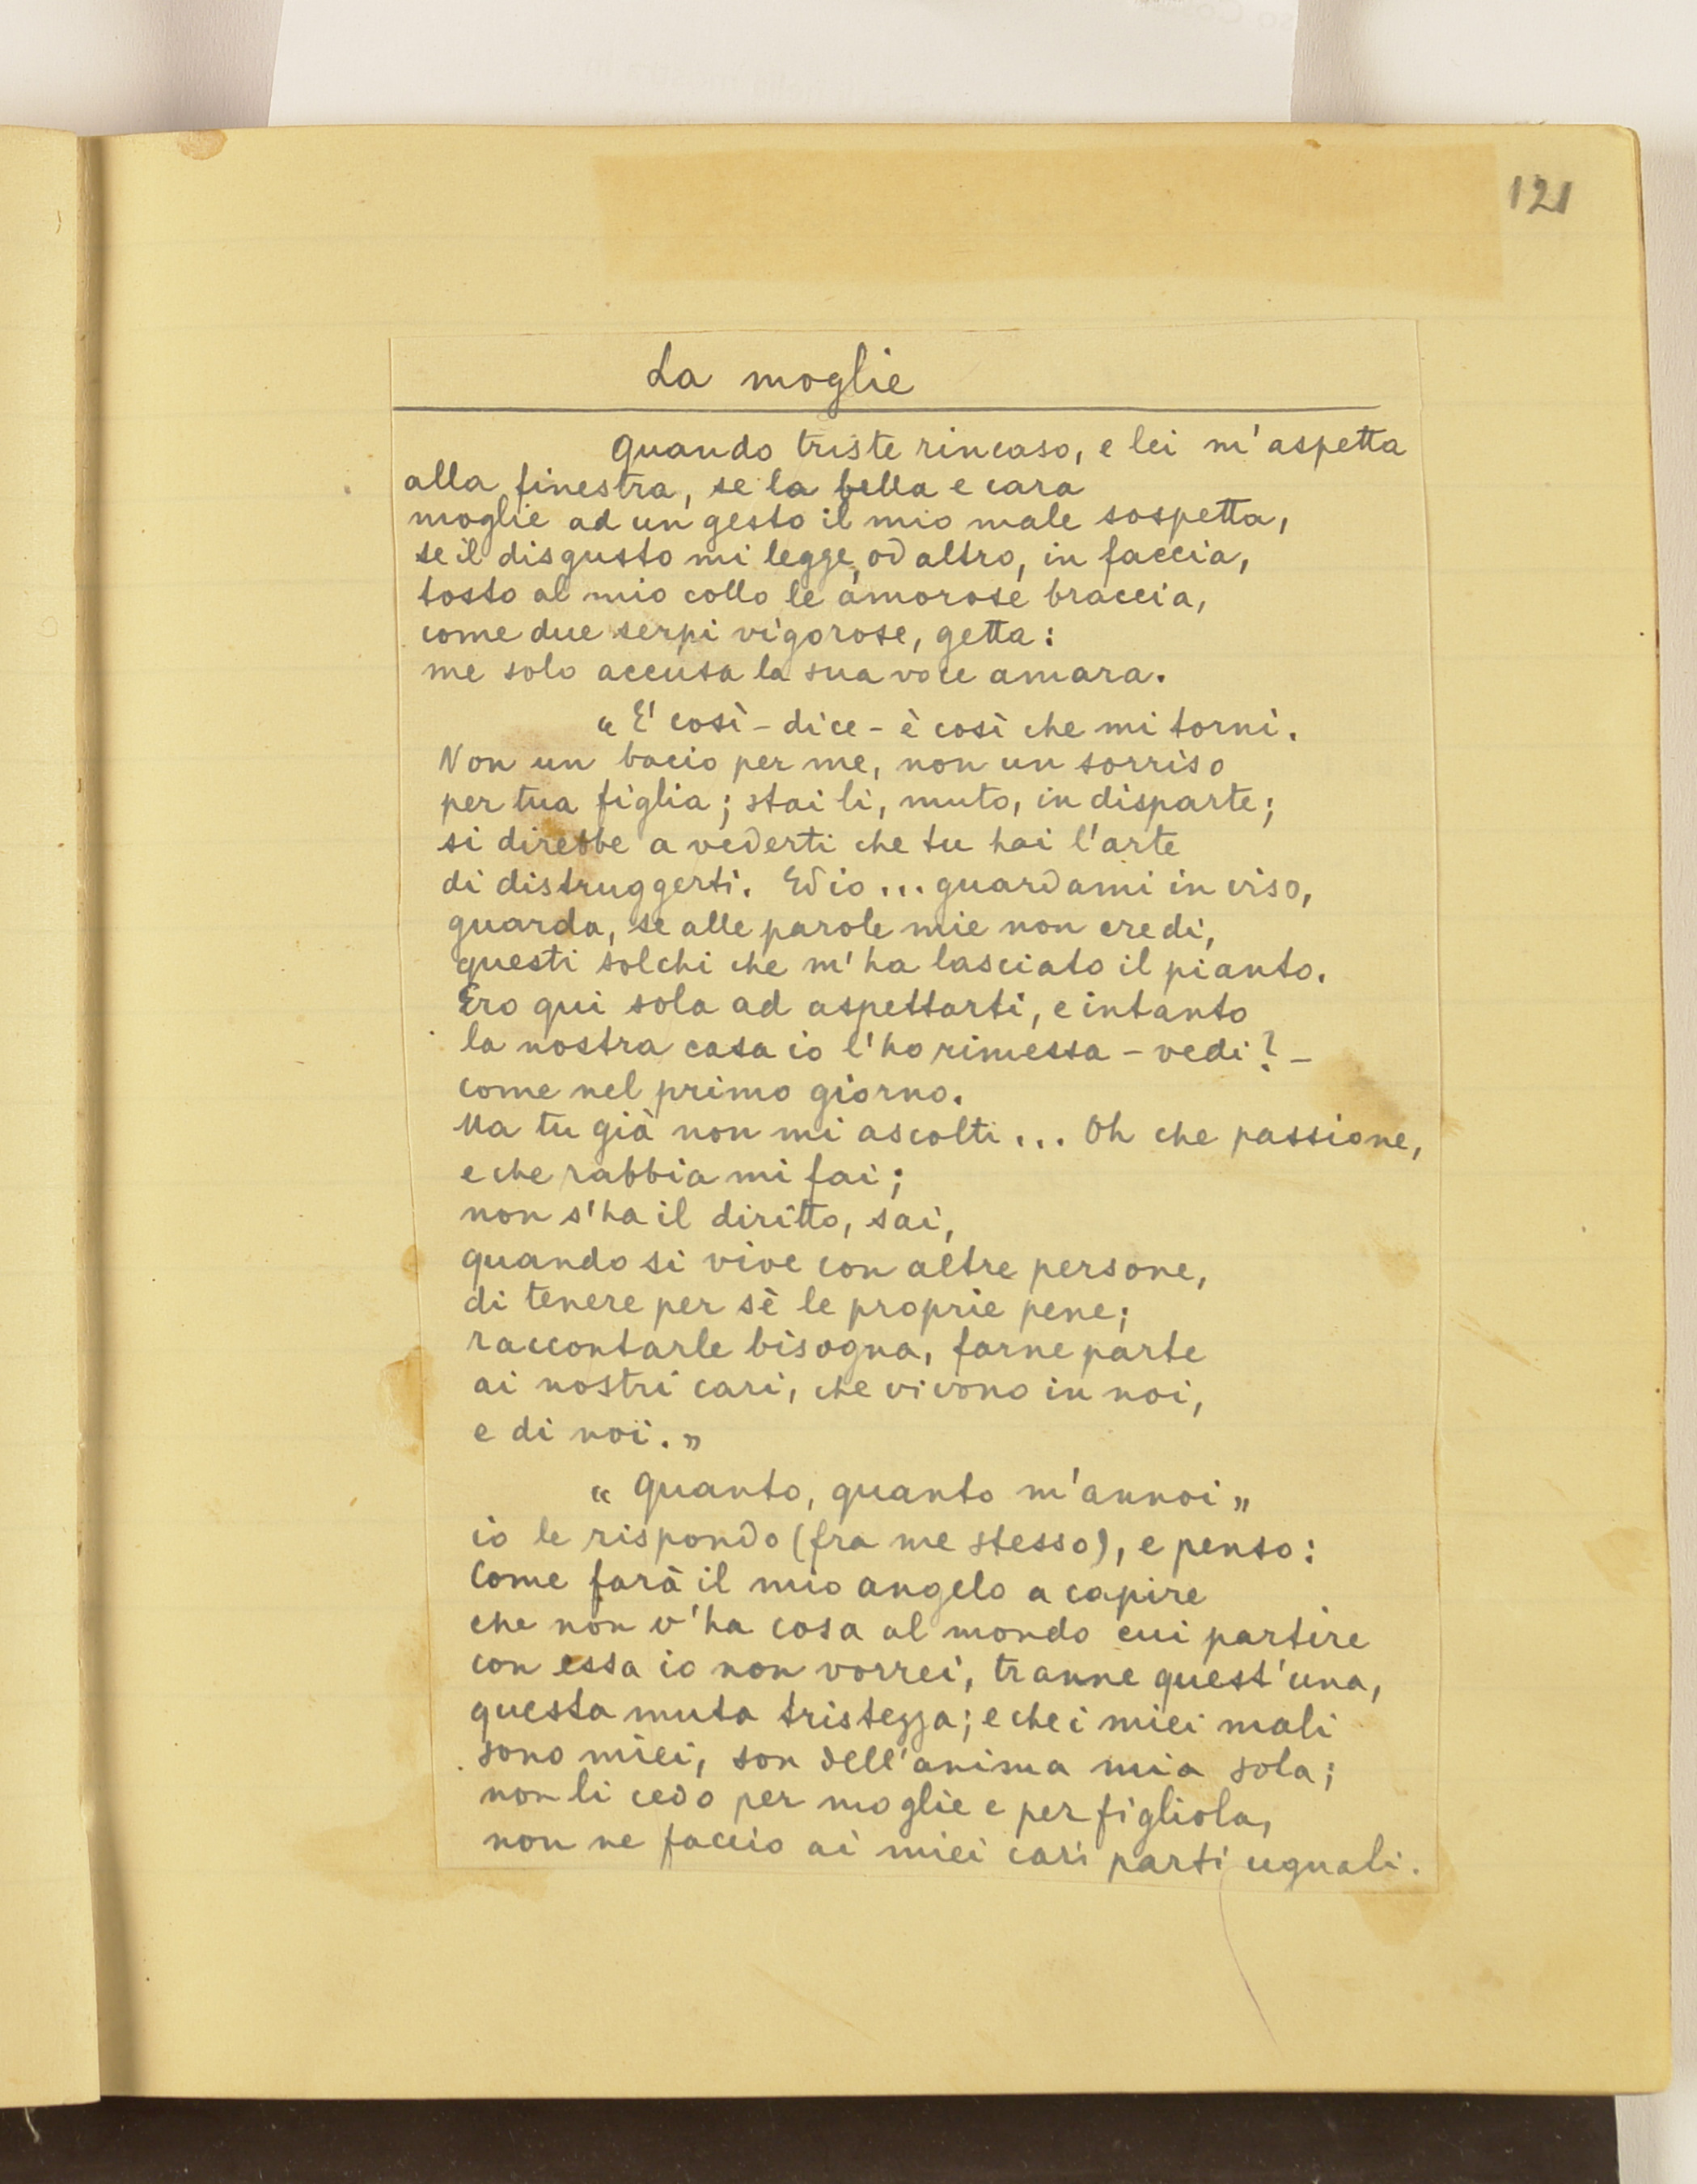 121
La moglie
Quando triste rincaso, e lei m'aspetta
alla finestra, se la bella e cara
moglie ad un gesto il mio male sospetta,
se il disgusto mi legge, od altro, in faccia,
tosto al mio collo le amorose braccia,
come due serpi vigorose, getta:
me solo accusa la sua voce amara.
„E' così - dice - è così che mi torni.
Non un bacio per me, non un sorriso
per tua figlia; stai lì, muto, in disparte;
si direbbe a vederti che tu hai l'arte
di distruggerti. Ed io... guardami in viso,
guarda, se alle parole mie non credi,
questi solchi che m'ha lasciato il pianto.
Ero qui sola ad aspettarti, e intanto
la nostra casa io l'ho rimessa - vedi? -
come nel primo giorno.
Ma tu già non mi ascolti... Oh che passione,
e che rabbia mi fai;
non s'ha il diritto, sai,
quando si vive con altre persone,
di tenere per sè le proprie pene;
raccontarle bisogna, farne parte
ai nostri cari, che vivono in noi,
e di noi."
„Quanto, quanto m'annoi"
io le rispondo (fra me stesso), e penso:
Come farà il mio angelo a capire
che non v'ha cosa al mondo cui partire
con essa io non vorrei, tranne quest'una,
questa muta tristezza; e che i miei mali
sono miei, son dell'anima mia sola;
non li cedo per moglie e per figliola,
non ne faccio ai miei cari parti uguali.